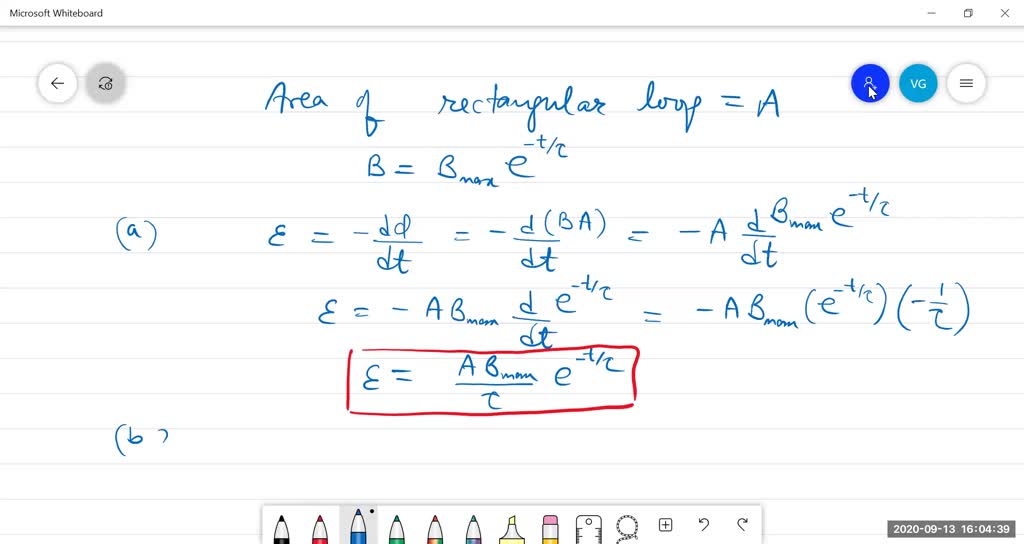 Microsoft Whiteboard
VG
Area of rectangular loop = A
B = B_max e^{-t/τ}
(a) ε = -dϕ/dt = -d(BA)/dt = -A d/dt B_max e^{-t/τ}
ε = -A B_max d/dt e^{-t/τ} = -A B_max (e^{-t/τ})(-1/τ)
ε = A B_max/τ e^{-t/τ}
(b)
2020-09-13 16:04:39